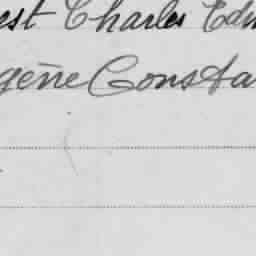 est Charles Edw
gène Consta